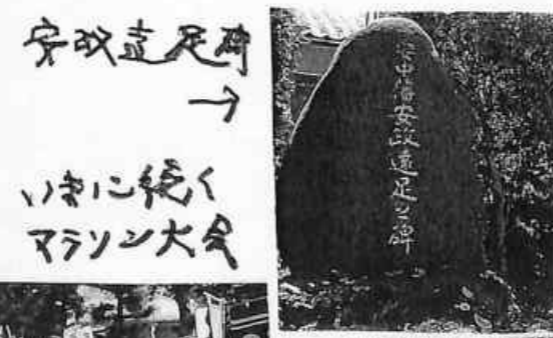 安政遠足碑
→
いまに続く
マラソン大会
安中藩安政遠足之碑